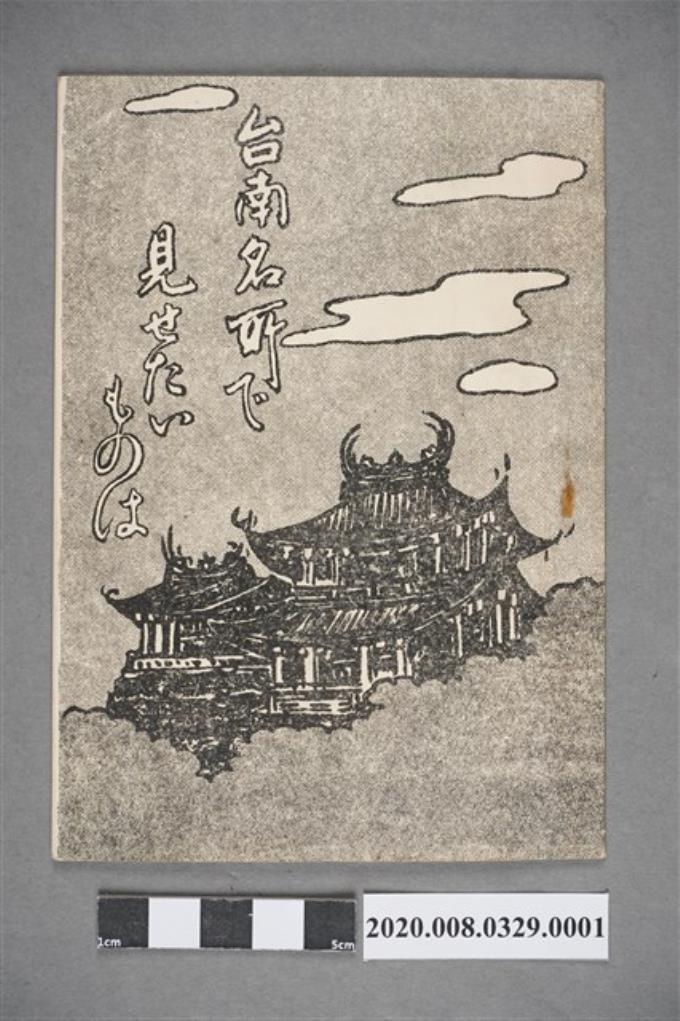 台南名所で
見せたい
ものは
1cm
5cm
2020.008.0329.0001